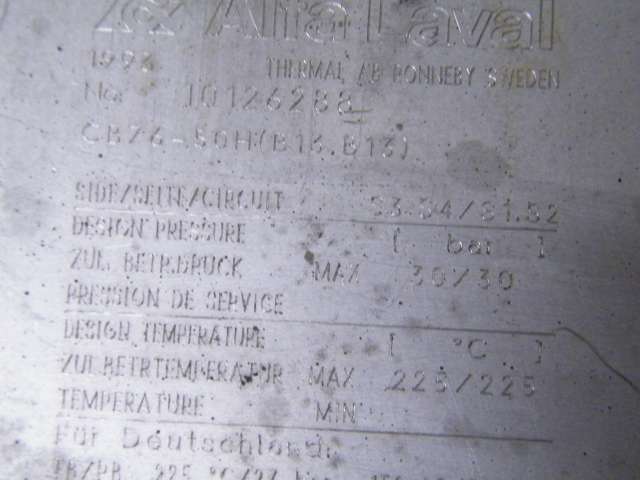 Alfa Laval
1993 THERMAL AB RONNEBY SWEDEN
No. 10126288
CB76-50H(B13.B13)
SIDE/SEITE/CIRCUIT S3.S4/S1.S2
DESIGN PRESSURE [ bar ]
ZUL. BETR.DRUCK MAX 30/30
PRESSION DE SERVICE
DESIGN TEMPERATURE [ °C ]
ZUL.BETRTEMPERATUR MAX 225/225
TEMPERATURE MIN
Für Deutschland:
TB/PB 225 °C/27